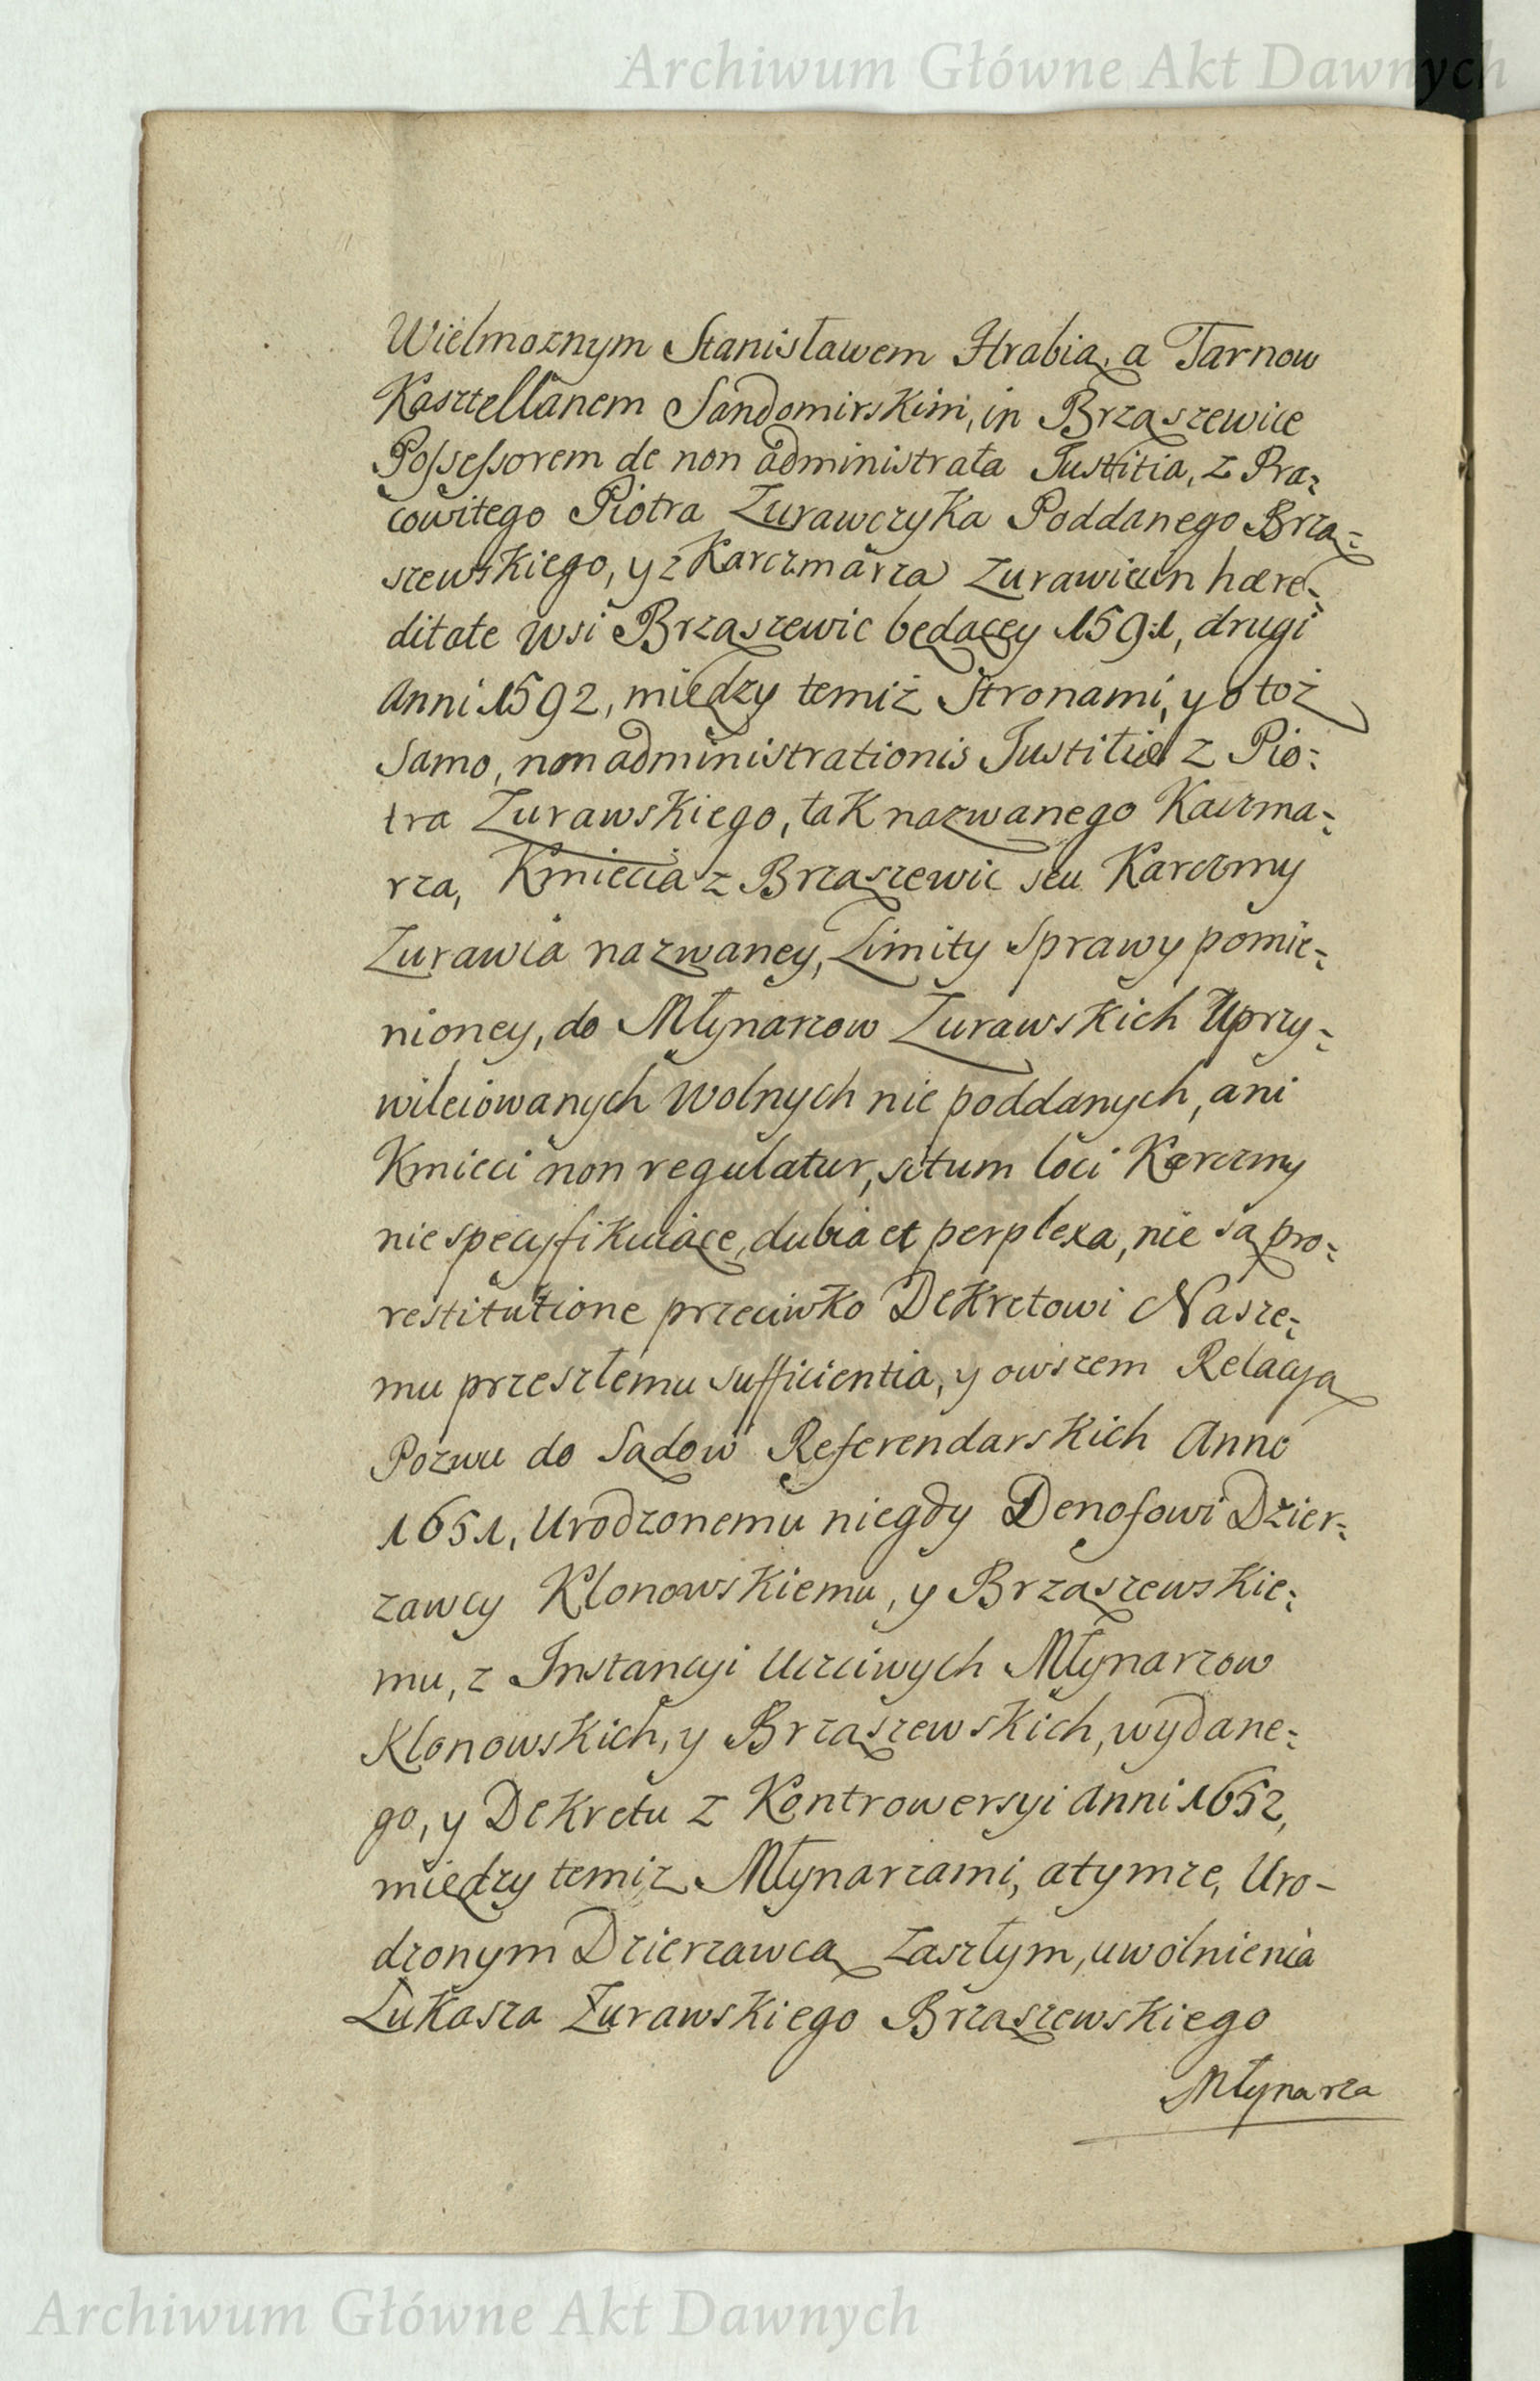 Archiwum Główne Akt Dawnych
Wielmoznym Stanisławem Hrabią a Tarnow
Kasztellanem Sandomirskim, in Brząszewice
Possessorem de non administrata Justitia, z Pra=
cowitego Piotra Zurawczyka Poddanego Brzą=
szewskiego, y z Karczmarza Zurawie in hære=
ditate wsi Brząszewic będącey 1591, drugi
Anni 1592, między temiż Stronami, y o toż
Samo, non administrationis Justitiæ z Pio=
tra Zurawskiego, tak nazwanego Karzma=
rza, Kmiecia z Brząszewic seu Karczmy
Zurawia nazwaney, Limity Sprawy pomie=
nioney, do Młynarzow Zurawskich Uprzy=
wileiowanych Wolnych nie poddanych, ani
Kmieci non regulatur, situm loci Karczmy
nie specyfikuiące, dubia et perplexa, nie są pro=
restitutione przeciwko Dekretowi Nasze=
mu przeszłemu sufficientia, y owszem Relacyą
Pozwu do Sądow Referendarskich Anno
1651, Urodzonemu niegdy Denofowi Dzier=
zawcy Klonowskiemu, y Brząszewskie=
mu, z Instancyi Uczciwych Młynarzow
Klonowskich, y Brząszewskich, wydane=
go, y Dekretu z Kontrowersyi Anni 1652,
między temiz Młynarzami, a tymze, Uro-
dzonym Dzierzawcą zaszłym, uwolnienia
Łukasza Żurawskiego Brząszewskiego
Młynarza
Archiwum Główne Akt Dawnych